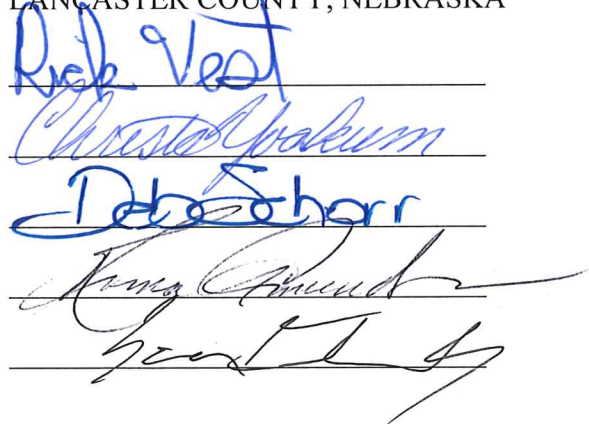 LANCASTER COUNTY, NEBRASKA
Rick Vest
Christa Yoakum
Deb Schorr
Roma Amundson